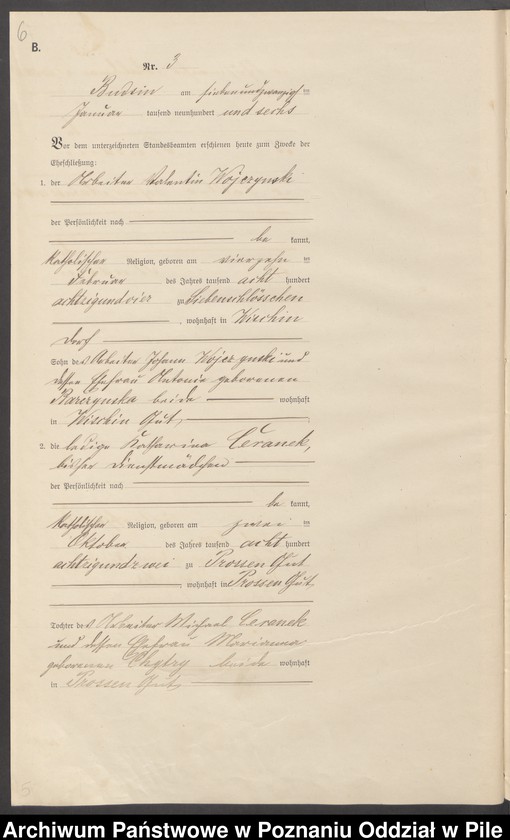 6
B.
Nr. 3
Budsin am siebenundzwanzigsten
Januar tausend neunhundert und sechs
Vor dem unterzeichneten Standesbeamten erschienen heute zum Zwecke der
Eheschließung:
1. der Arbeiter Valentin Wojczynski
der Persönlichkeit nach
be kannt,
katholischer Religion, geboren am vierzehn ten
Februar des Jahres tausend acht hundert
achtzigundvier zu Siebenschlösschen
, wohnhaft in Wischin
Dorf
Sohn des Arbeiter Johann Wojczynski und
dessen Ehefrau Antonie geborenen
beide wohnhaft
in Wischin Gut,
2. die ledige Katharina Ceranek,
bisher Dienstmädchen
der Persönlichkeit nach
be kannt,
katholischer Religion, geboren am zwei ten
Oktober des Jahres tausend acht hundert
achtzigundzwei zu Prossen Gut
, wohnhaft in Prossen Gut
Tochter des Arbeiter Michael Ceranek
und dessen Ehefrau Marianna
geborenen beide wohnhaft
in Prossen Gut,
Archiwum Państwowe w Poznaniu Oddział w Pile